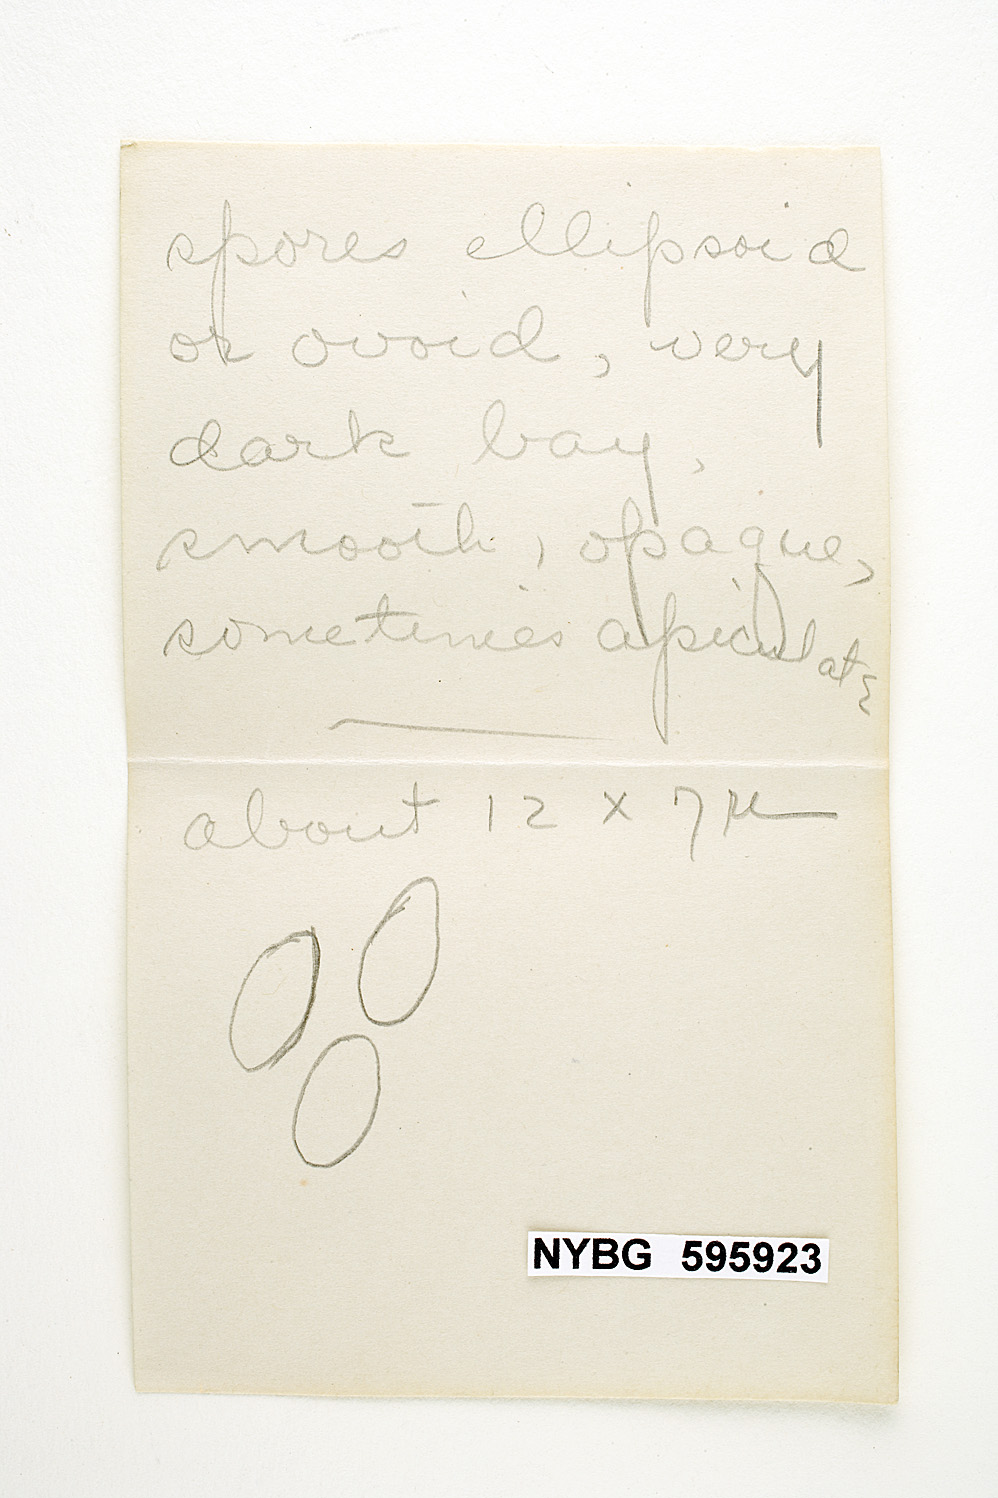 spores ellipsoid
or ovoid, very
dark bay,
smooth, opaque,
sometimes apiculate
about 12 x 7 µ
NYBG 595923